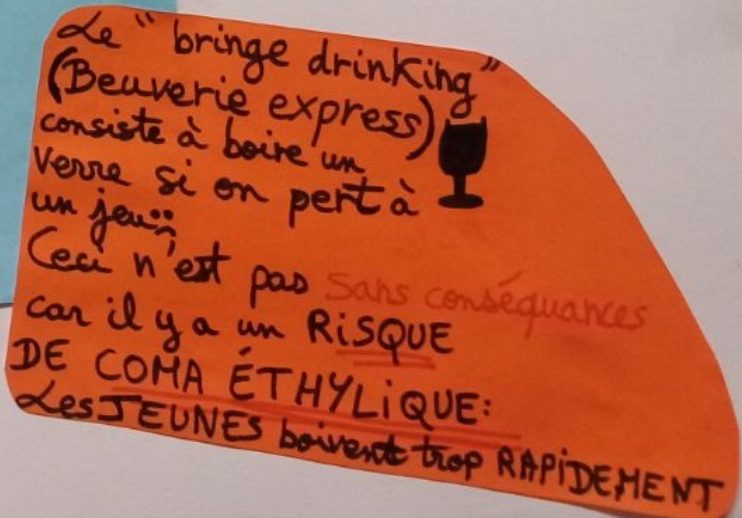 Le "bringe drinking"
(Beuverie express)
consiste à boire un
verre si on pert à
un jeu
Ceci n'est pas sans conséquances
car il y a un RISQUE
DE COMA ÉTHYLIQUE:
Les JEUNES boivent trop RAPIDEMENT